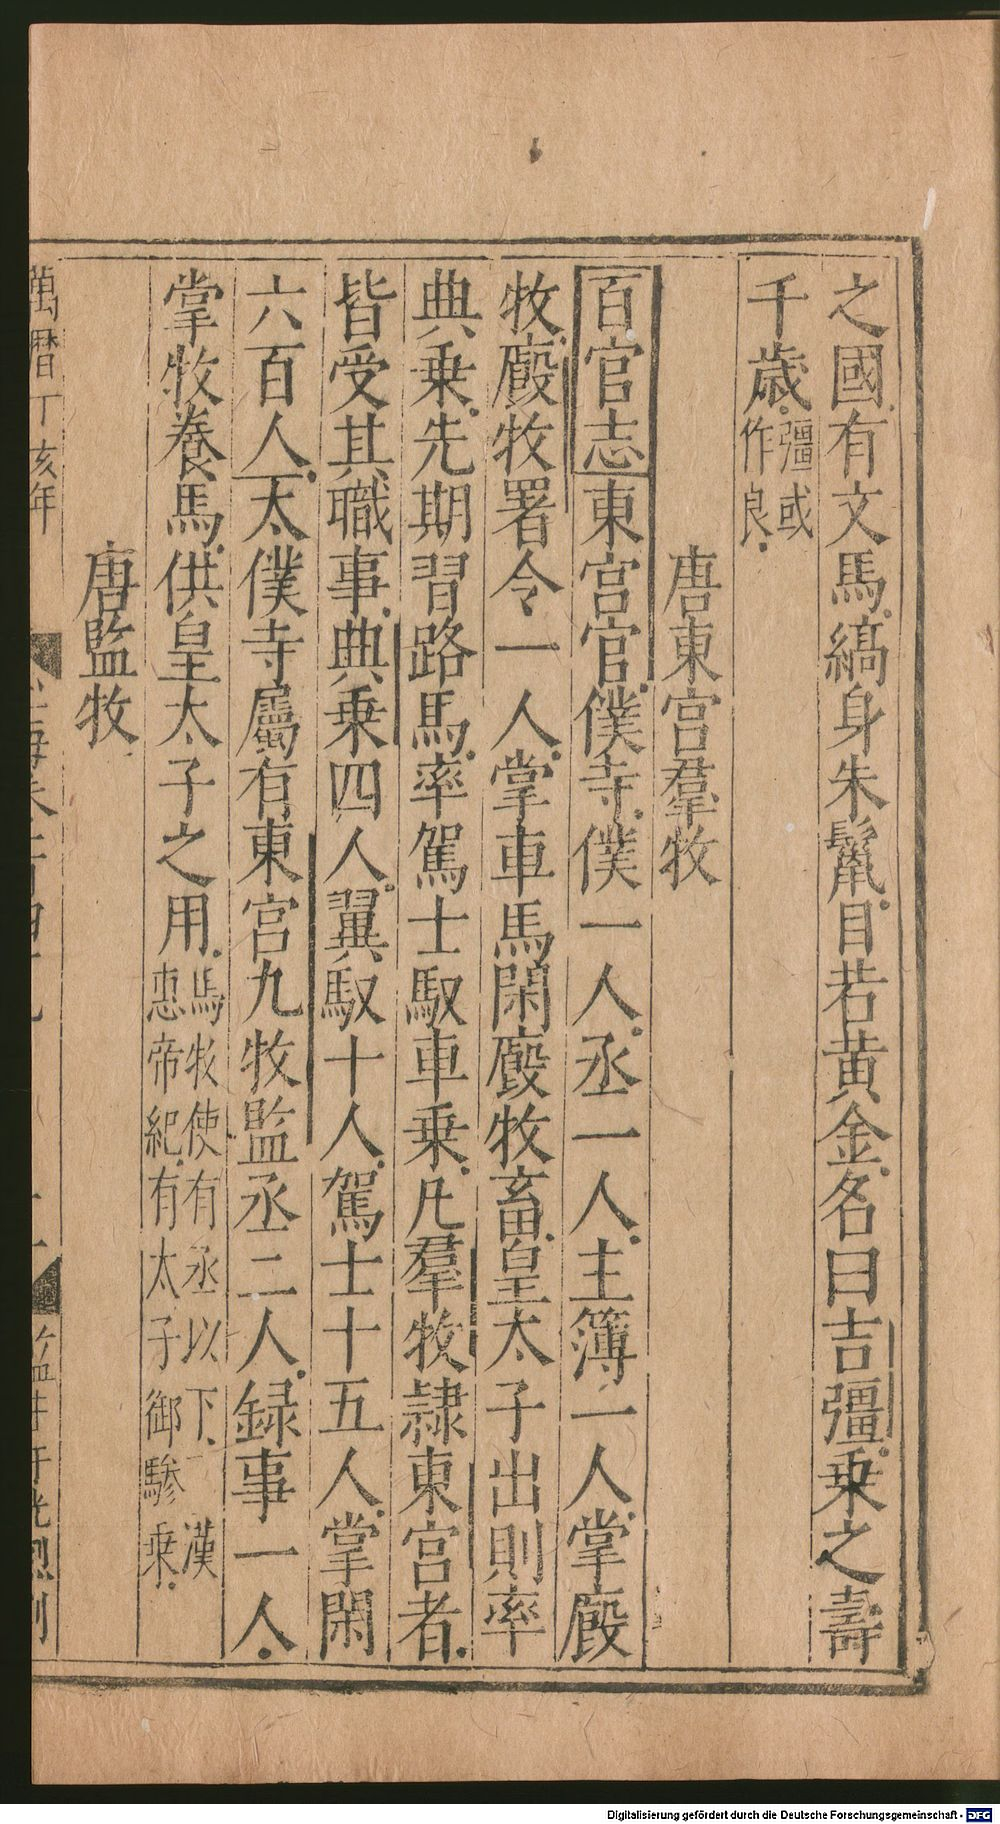 之國有文馬縞身朱鬣目若黄金名曰吉彊乗之壽
千歳彊或作良
唐東宫羣牧
百官志東宫官僕寺僕一人丞一人主簿一人掌廄
牧廄牧署令一人掌車馬閑廄牧畜皇太子出則率
典乗先期習路馬率駕士馭車乗凡羣牧隷東宫者
皆受其職事典乗四人翼馭十人駕士十五人掌閑
六百人太僕寺屬有東宫九牧監丞二人録事一人
掌牧養馬供皇太子之用馬牧使有丞以下漢惠帝紀有太子御驂乗
唐監牧
萬曆丁亥年
監生許光烈刊
Digitalisierung gefördert durch die Deutsche Forschungsgemeinschaft - DFG